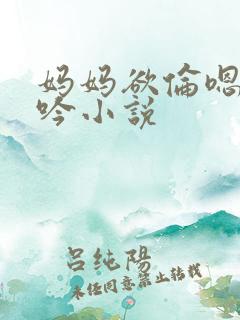 妈妈欲倫嗯
吟小説
吕纯陽
未经同意禁止转载